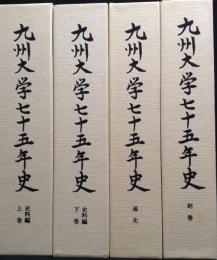 九州大学七十五年史
史料編
上巻
九州大学七十五年史
史料編
下巻
九州大学七十五年史
通史
九州大学七十五年史
別巻